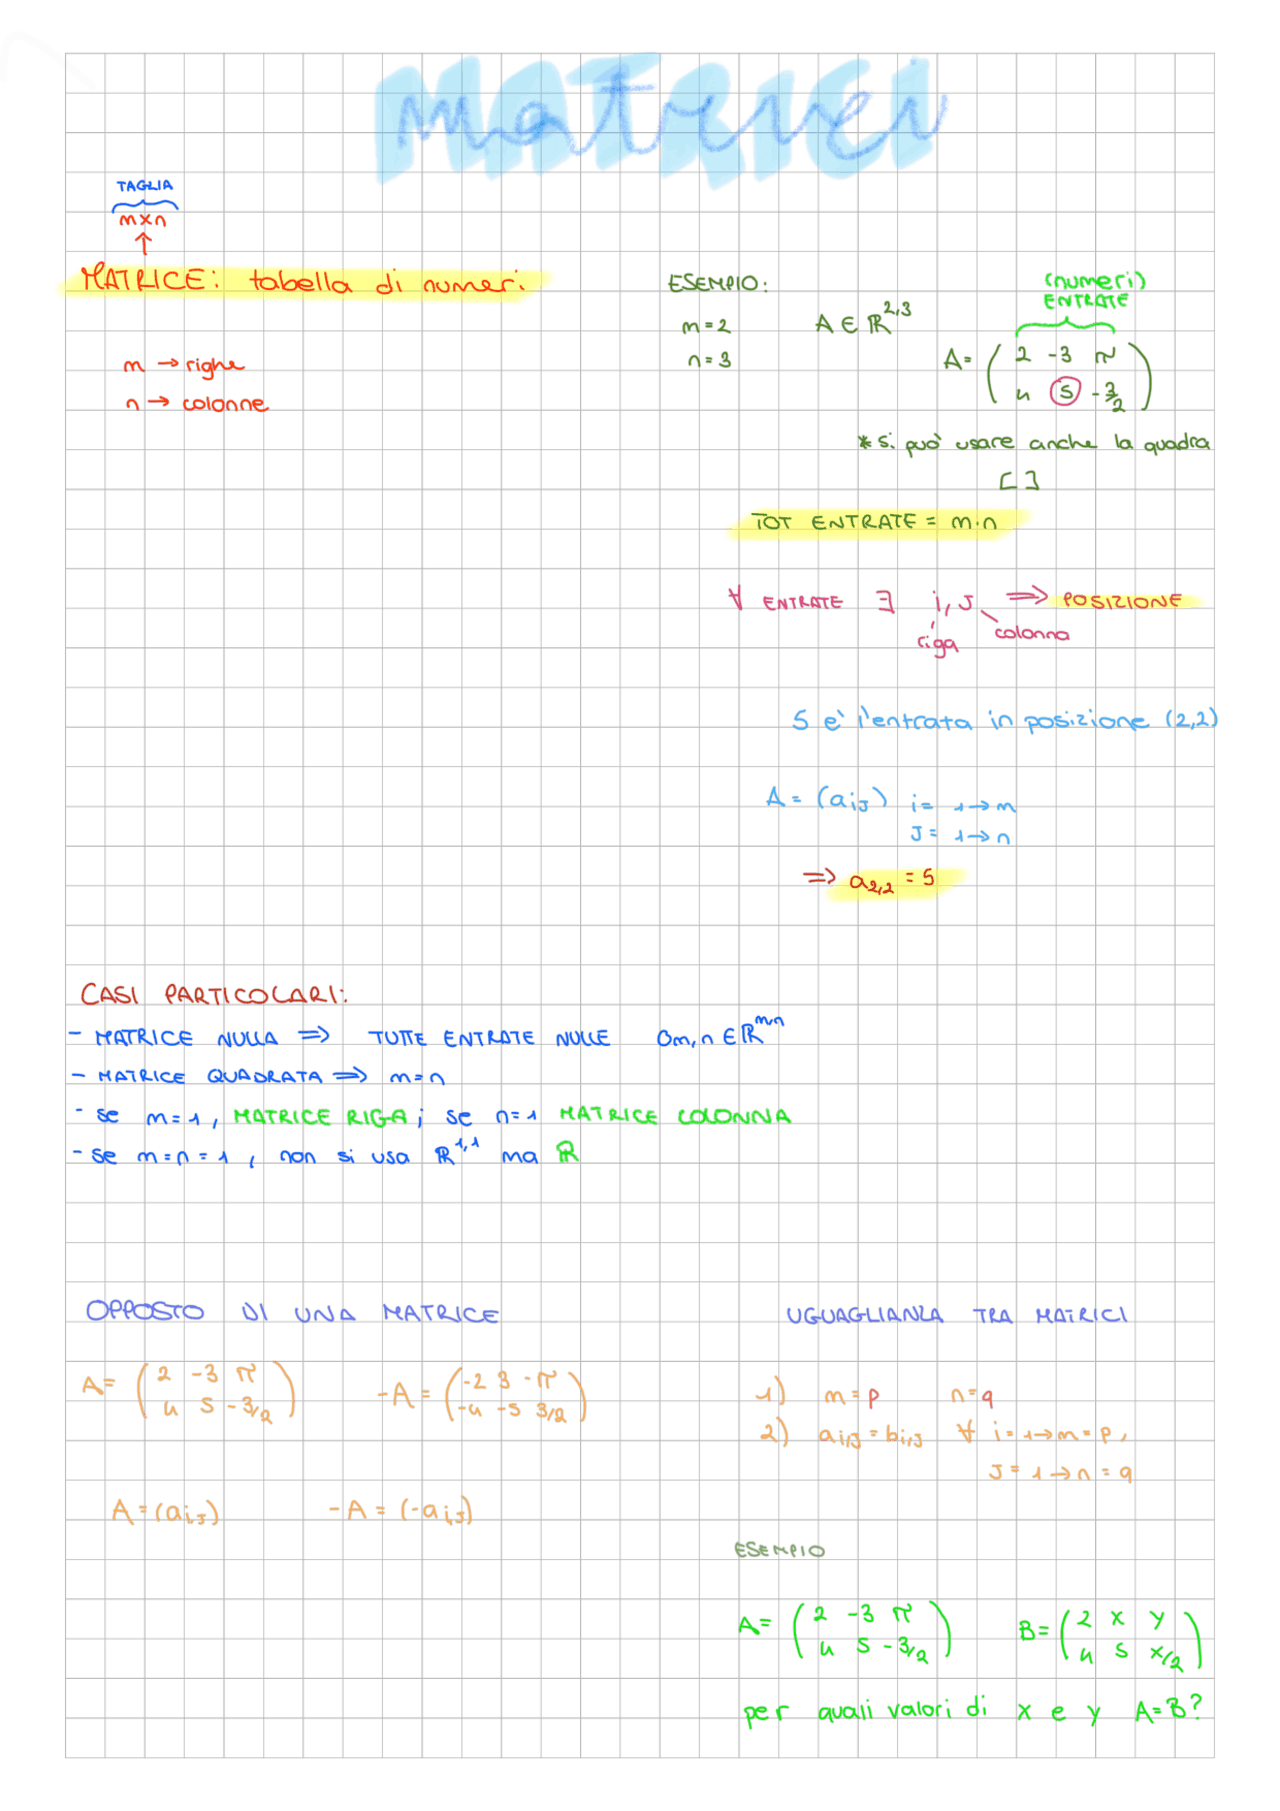 matrici
MATRICI
TAGLIA
m×n
↑
MATRICE: tabella di numeri
m → righe
n → colonne
ESEMPIO:
m = 2
n = 3
A ∈ ℝ^2,3
(numeri)
ENTRATE
A = ( 2 -3 π
4 5 -3/2 )
* si può usare anche la quadra
[ ]
TOT ENTRATE = m·n
∀ ENTRATE ∃ i, J ⇒ POSIZIONE
riga colonna
5 e' l'entrata in posizione (2,2)
A = (ai,J) i = 1 → m
J = 1 → n
⇒ a2,2 = 5
CASI PARTICOLARI:
- MATRICE NULLA ⇒ TUTTE ENTRATE NULLE 0m,n ∈ ℝ^m,n
- MATRICE QUADRATA ⇒ m = n
- se m = 1, MATRICE RIGA; se n = 1 MATRICE COLONNA
- se m = n = 1, non si usa ℝ^1,1 ma ℝ
OPPOSTO DI UNA MATRICE
A = ( 2 -3 π
4 5 -3/2 )
-A = ( -2 3 -π
-4 -5 3/2 )
A = (ai,J) -A = (-ai,J)
UGUAGLIANZA TRA MATRICI
1) m = p n = q
2) ai,J = bi,J ∀ i = 1 → m = p,
J = 1 → n = q
ESEMPIO
A = ( 2 -3 π
4 5 -3/2 )
B = ( 2 x y
4 5 x/2 )
per quali valori di x e y A = B?